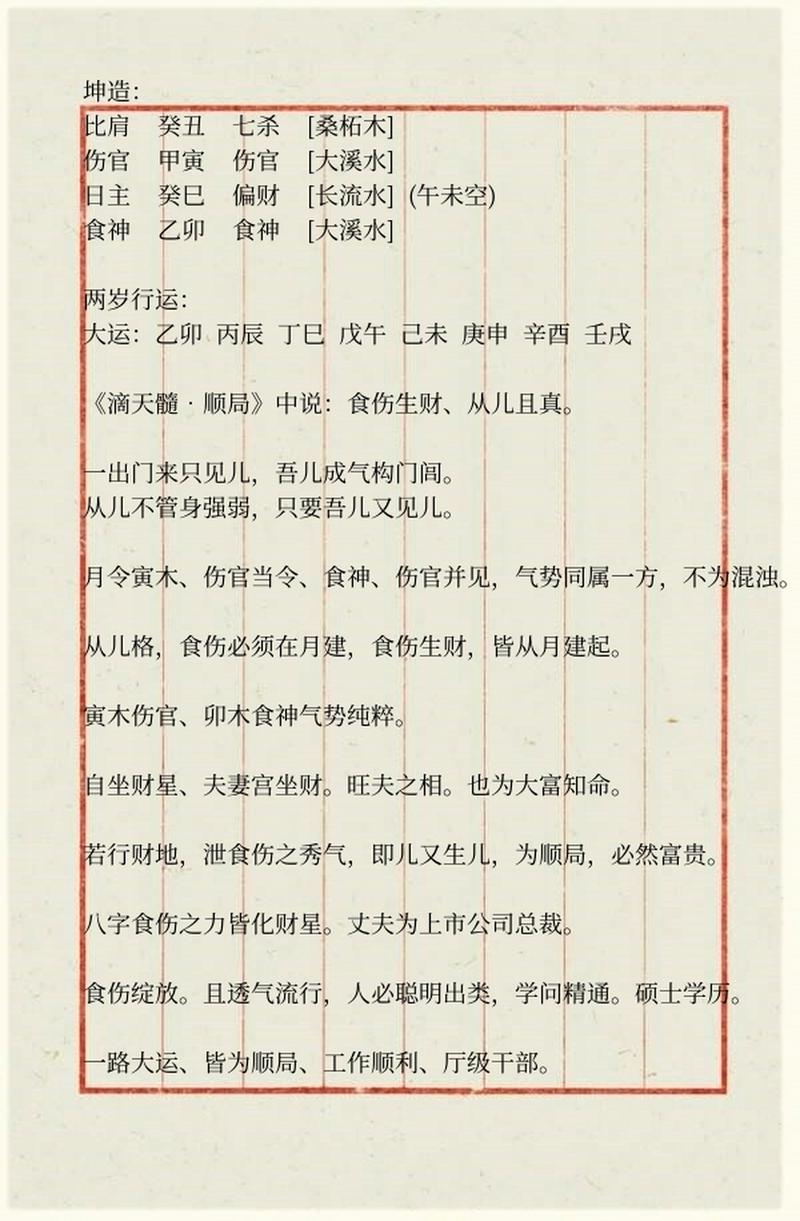 坤造：
比肩 癸丑 七杀 [桑柘木]
伤官 甲寅 伤官 [大溪水]
日主 癸巳 偏财 [长流水] (午未空)
食神 乙卯 食神 [大溪水]
两岁行运：
大运：乙卯 丙辰 丁巳 戊午 己未 庚申 辛酉 壬戌
《滴天髓·顺局》中说：食伤生财、从儿且真。
一出门来只见儿，吾儿成气构门闾。
从儿不管身强弱，只要吾儿又见儿。
月令寅木、伤官当令、食神、伤官并见，气势同属一方，不为混浊。
从儿格，食伤必须在月建，食伤生财，皆从月建起。
寅木伤官、卯木食神气势纯粹。
自坐财星、夫妻宫坐财。旺夫之相。也为大富知命。
若行财地，泄食伤之秀气，即儿又生儿，为顺局，必然富贵。
八字食伤之力皆化财星。丈夫为上市公司总裁。
食伤绽放。且透气流行，人必聪明出类，学问精通。硕士学历。
一路大运、皆为顺局、工作顺利、厅级干部。